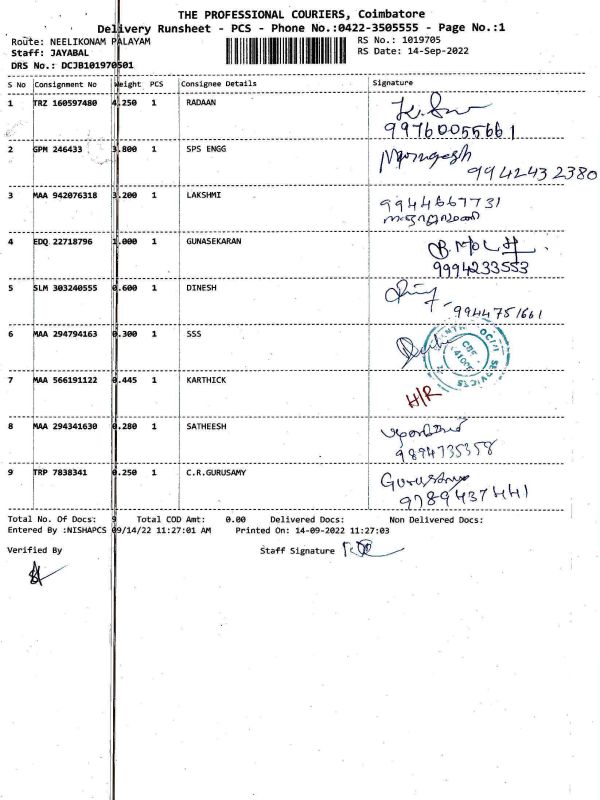 THE PROFESSIONAL COURIERS, Coimbatore
Delivery Runsheet - PCS - Phone No.:0422-3505555 - Page No.:1
Route: NEELIKONAM PALAYAM RS No.: 1019705
Staff: JAYABAL RS Date: 14-Sep-2022
DRS No.: DCJB101970501
S No Consignment No Weight PCS Consignee Details Signature
1 TRZ 160597480 4.250 1 RADAAN
99760055661
2 GPM 246433 3.800 1 SPS ENGG
9942432380
3 MAA 942076318 3.200 1 LAKSHMI 9944667731
4 EDQ 22718796 1.000 1 GUNASEKARAN
9994233553
5 SLM 303240555 0.600 1 DINESH
9944751661
6 MAA 294794163 0.300 1 SSS
7 MAA 566191122 0.445 1 KARTHICK H/R
8 MAA 294341630 0.280 1 SATHEESH
9894735358
9 TRP 7838341 0.250 1 C.R.GURUSAMY
9789437441
Total No. Of Docs: 9 Total COD Amt: 0.00 Delivered Docs: Non Delivered Docs:
Entered By :NISHAPCS 09/14/22 11:27:01 AM Printed On: 14-09-2022 11:27:03
Verified By Staff Signature